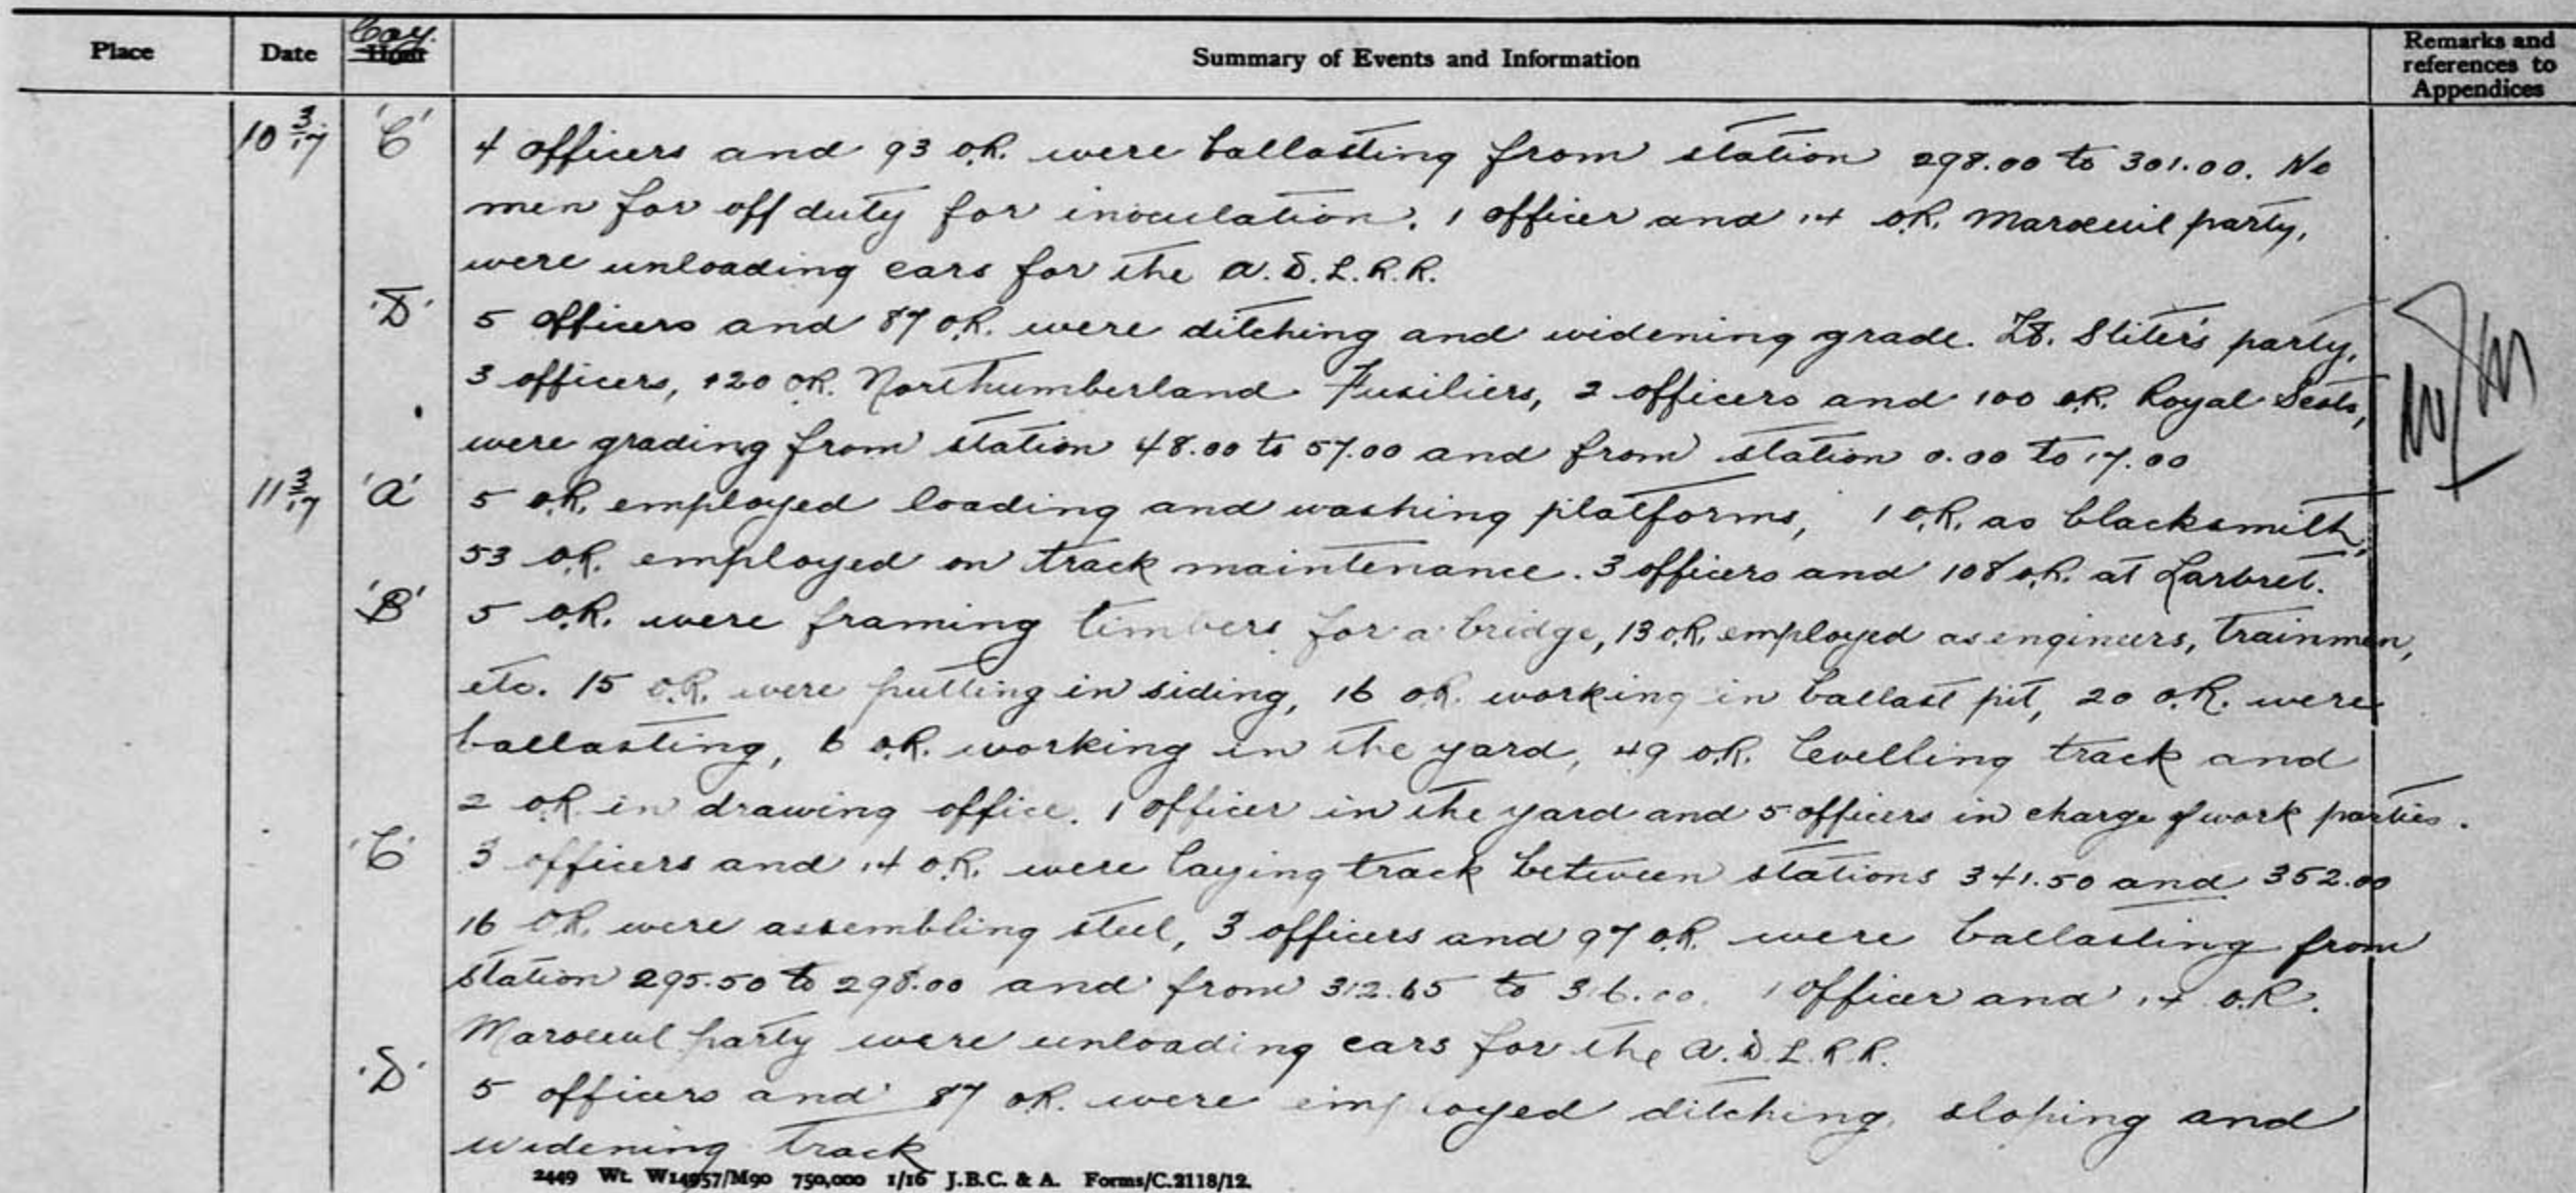 Place Date Coy. Hour Summary of Events and Information Remarks and references to Appendices
10 3/17 'C' 4 officers and 93 O.R. were ballasting from station 298.00 to 301.00. No
men for off duty for inoculation. 1 officer and 14 O.R. Maroeuil party,
were unloading cars for the A.D.L.R.R.
'D' 5 officers and 87 O.R. were ditching and widening grade. Lt. Sliter's party,
3 officers, 120 O.R. Northumberland Fusiliers, 2 officers and 100 O.R. Royal Scots,
were grading from station 48.00 to 57.00 and from station 0.00 to 17.00
11 3/17 'A' 5 O.R. employed loading and washing platforms, 1 O.R. as blacksmith,
53 O.R. employed on track maintenance. 3 officers and 108 O.R. at Larbret.
'B' 5 O.R. were framing timbers for a bridge, 13 O.R. employed as engineers, trainmen,
etc. 15 O.R. were putting in siding, 16 O.R. working in ballast pit, 20 O.R. were
ballasting, 6 O.R. working in the yard, 49 O.R. levelling track and
2 O.R. in drawing office. 1 officer in the yard and 5 officers in charge of work parties.
'C' 3 officers and 14 O.R. were laying track between stations 341.50 and 352.00
16 O.R. were assembling steel, 3 officers and 97 O.R. were ballasting from
station 295.50 to 298.00 and from 312.65 to 316.00. 1 officer and 14 O.R.
Maroeuil party were unloading cars for the A.D.L.R.R.
'D' 5 officers and 87 O.R. were employed ditching, sloping and
widening track
2449 Wt. W14957/M90 750,000 1/16 J.B.C. & A. Forms/C.2118/12.